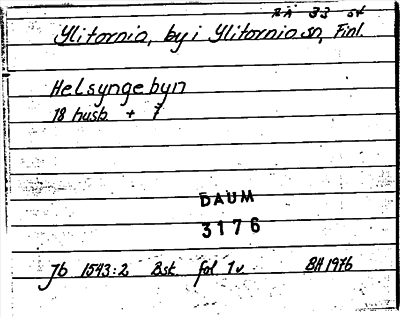 RÄ 33 st
Ylitornio, by i Ylitornio sn, Finl.
Helsyngebyn
18 husb. + 7
DAUM
3176
Jb 1543:2 Bst. fol 1v BH 1976